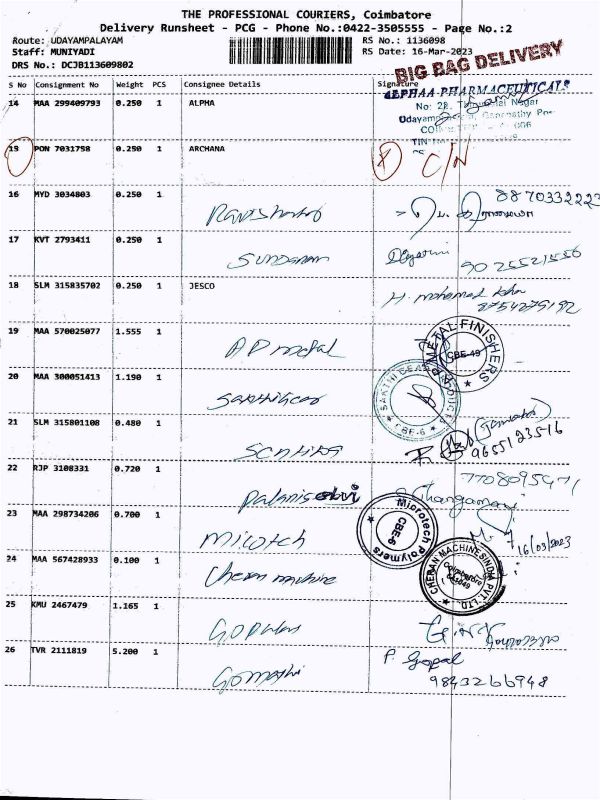 THE PROFESSIONAL COURIERS, Coimbatore
Delivery Runsheet - PCG - Phone No.:0422-3505555 - Page No.:2
Route: UDAYAMPALAYAM
RS No.: 1136098
Staff: MUNIYADI
RS Date: 16-Mar-2023
DRS No.: DCJB113609802
BIG BAG DELIVERY
S No Consignment No Weight PCS Consignee Details Signature
14 MAA 299409793 0.250 1 ALPHA
ALPHAA PHARMACEUTICALS
No: 28, Nagar
15 PON 7031758 0.250 1 ARCHANA C/N
16 MYD 3034803 0.250 1
8870332223
17 KVT 2793411 0.250 1 SUNDARAM
9025521556
18 SLM 315835702 0.250 1 JESCO H. Mohamed
8754275192
19 MAA 570025077 1.555 1 A P metal
METAL FINISHERS
CBE-49
20 MAA 300051413 1.190 1
CBE-6
21 SLM 315801108 0.480 1
9655123516
22 RJP 3108331 0.720 1
7708095471
23 MAA 298734206 0.700 1
Microtech Polymers
CBE-6
16/03/2023
24 MAA 567428933 0.100 1 Cheran machine
CHERAN MACHINES INDIA PVT. LTD.
Coimbatore
25 KMU 2467479 1.165 1
26 TVR 2111819 5.200 1 Gomathi P. Gopal
9843266948